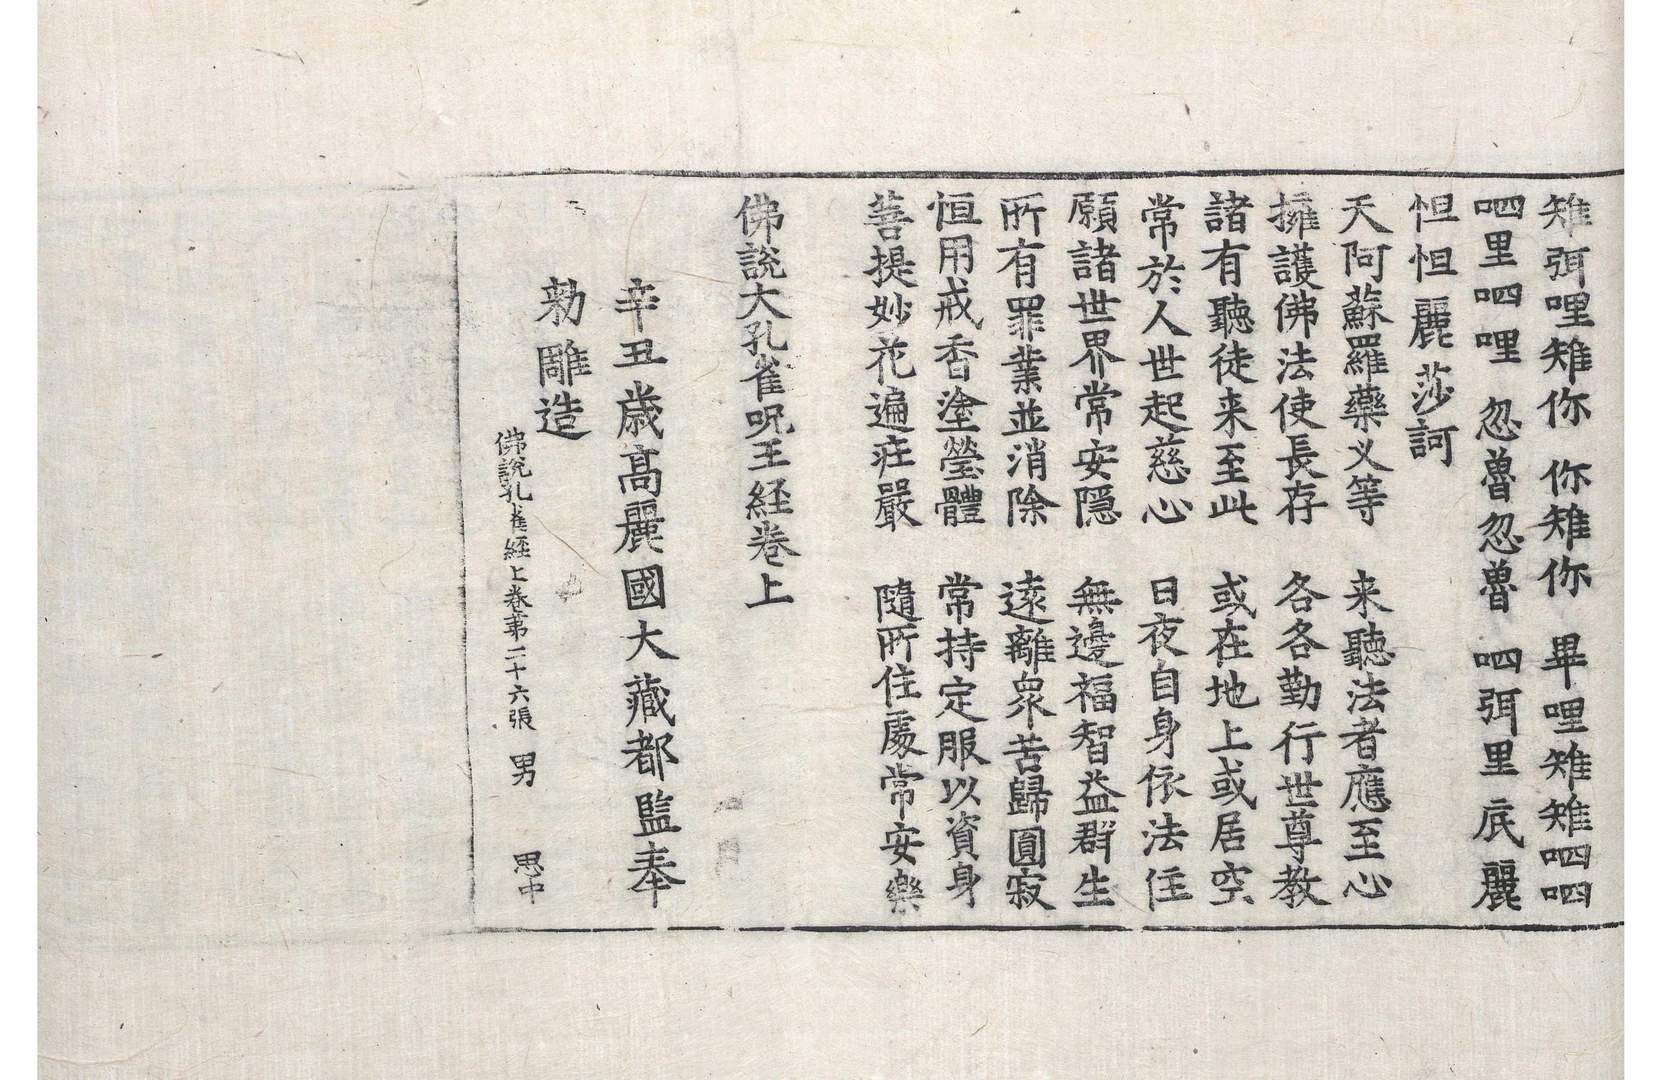 雉弭哩雉你　你雉你　畢哩雉雉呬呬
呬里呬哩　忽魯忽魯　呬弭里底麗
怛怛麗莎訶
天阿蘇羅藥叉等　来聽法者應至心
擁護佛法使長存　各各勤行世尊教
諸有聽徒来至此　或在地上或居空
常於人世起慈心　日夜自身依法住
願諸世界常安隱　無邊福智益群生
所有罪業並消除　遠離衆苦歸圓寂
恒用戒香塗瑩體　常持定服以資身
菩提妙花遍莊嚴　隨所住處常安樂
佛說大孔雀呪王經卷上
辛丑歲高麗國大藏都監奉
勅雕造
佛說孔雀經上卷第二十六張　男　思中